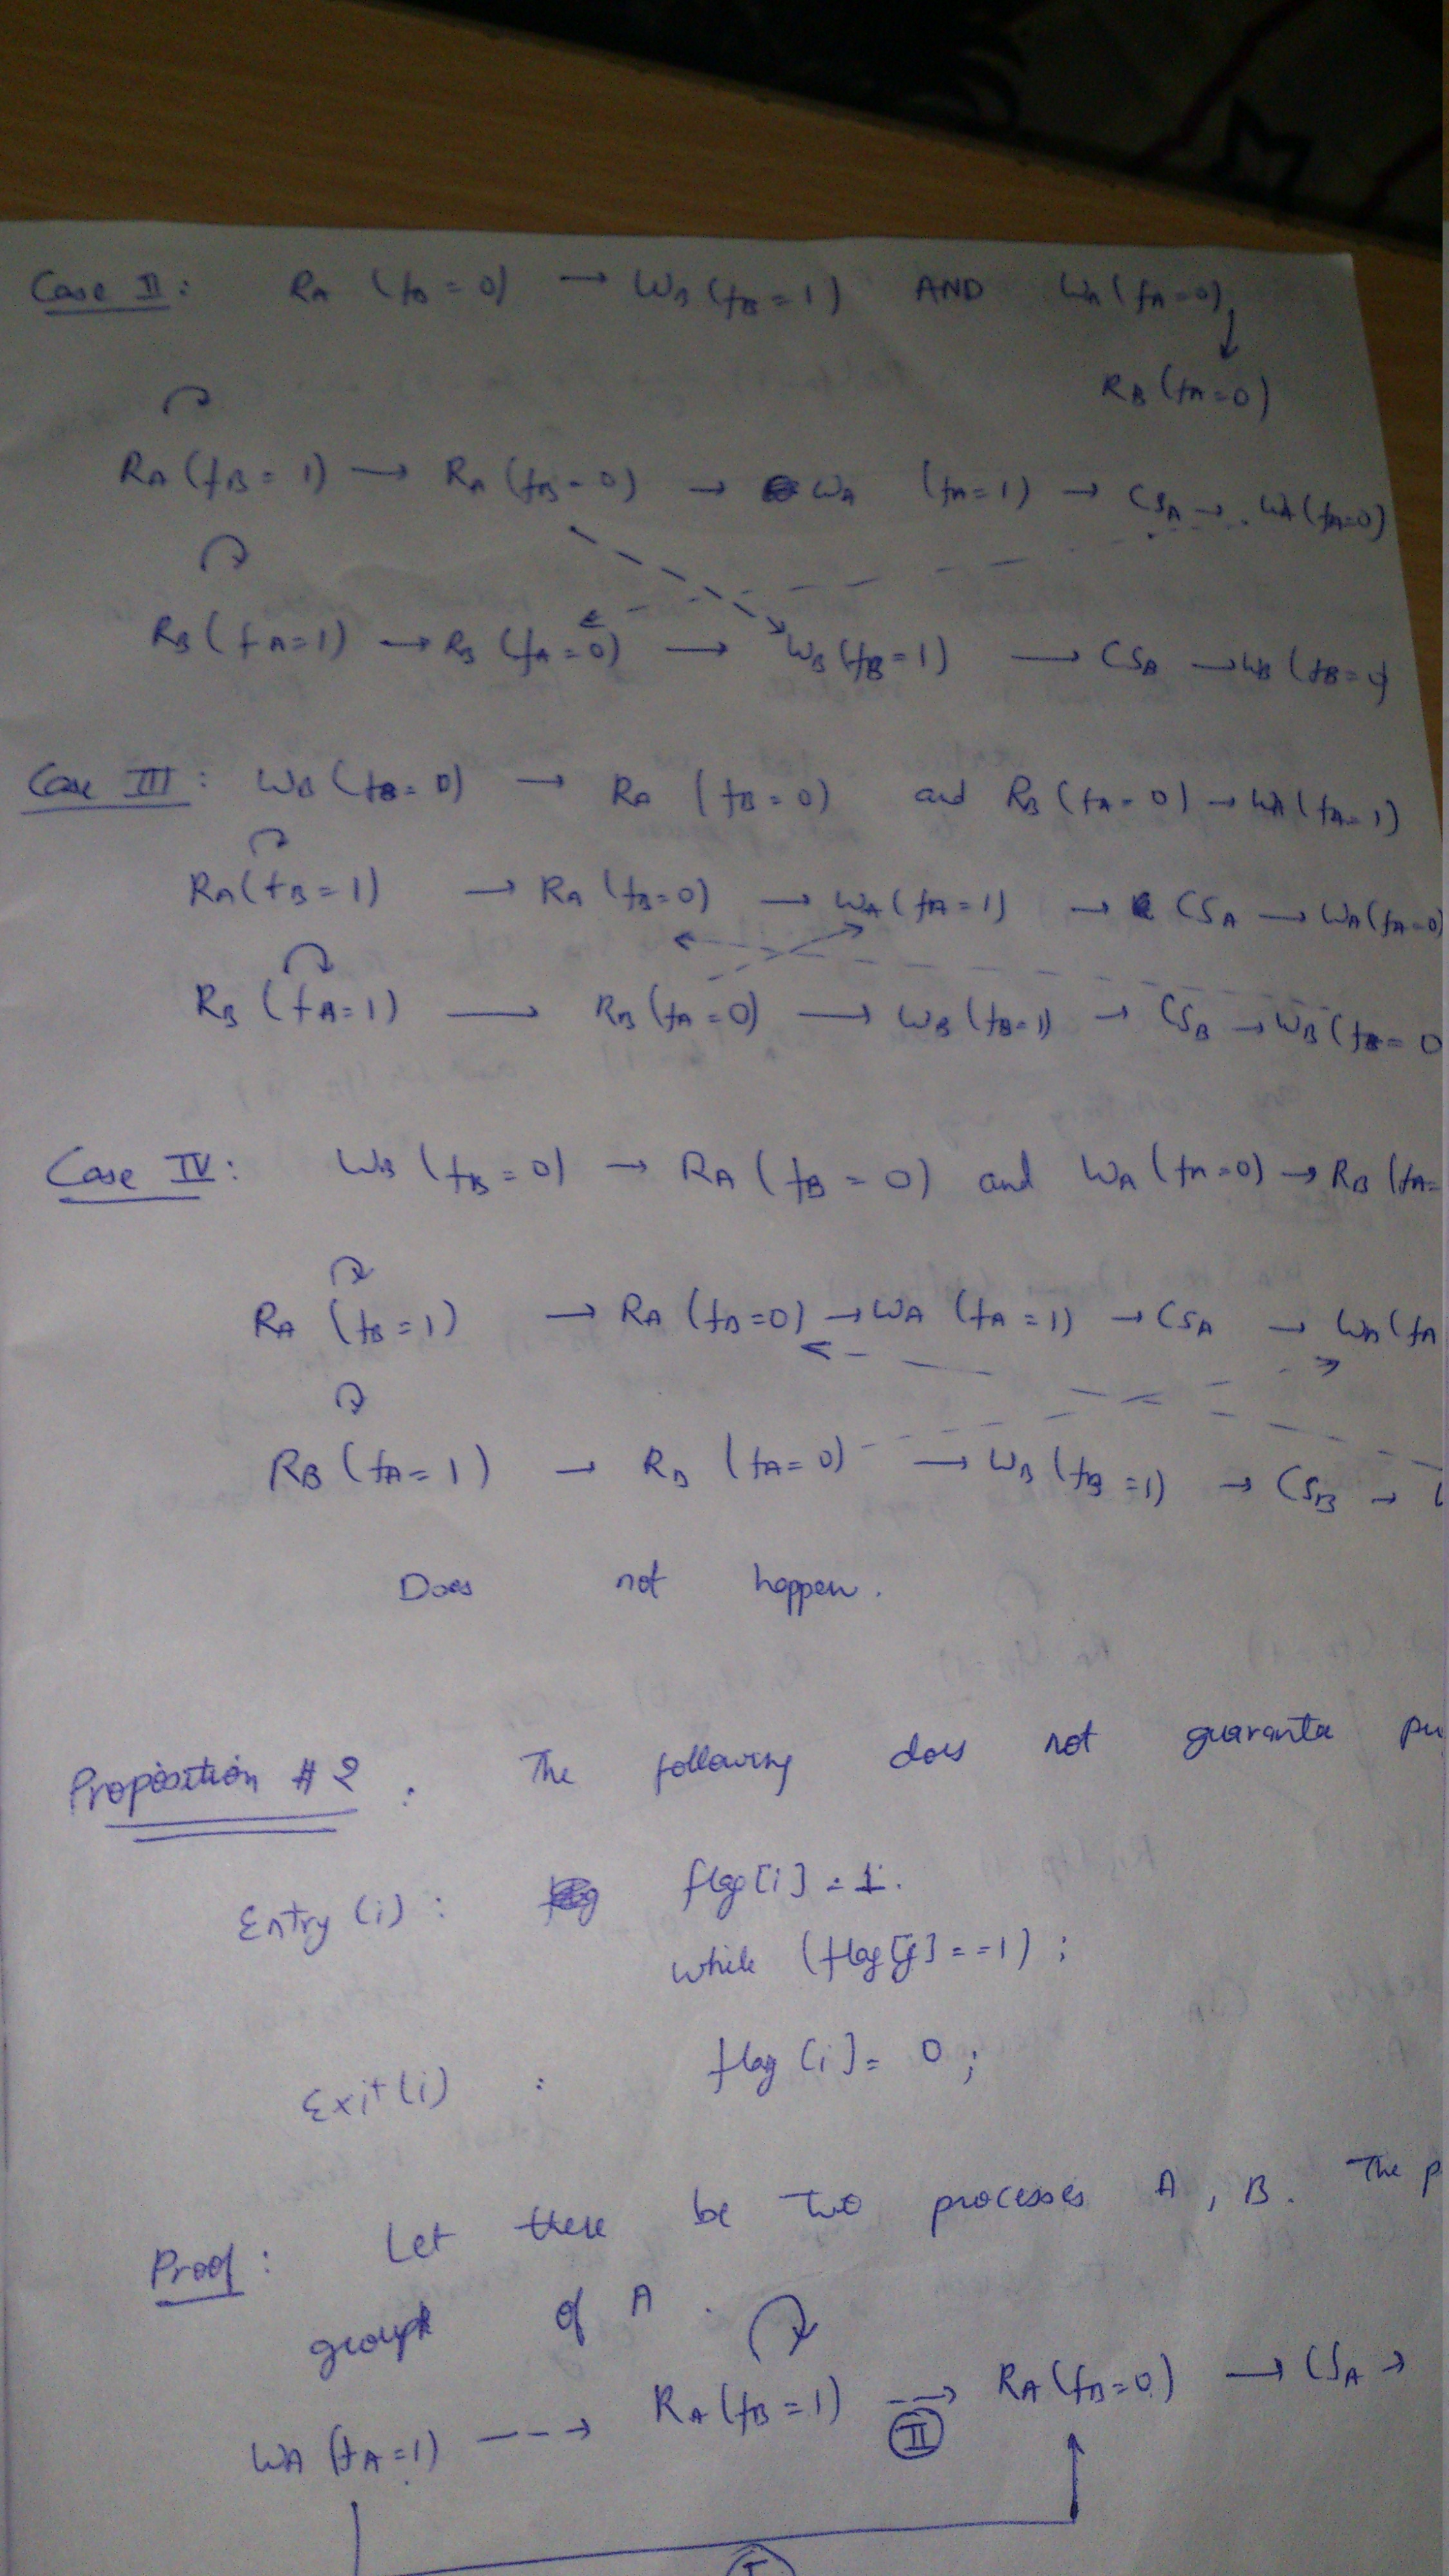 Case II: RA (fB = 0) → WB (fB = 1) AND WA (fA = 0)
↓
RB (fA = 0)
RA (fB = 1) → RA (fB = 0) → WA (fA = 1) → CSA → WA (fA = 0)
RB (fA = 1) → RB (fA = 0) → WB (fB = 1) → CSA → WB (fB =
Case III: WB (fB = 0) → RA (fB = 0) and RB (fA = 0) → WA (fA = 1)
RA (fB = 1) → RA (fB = 0) → WA (fA = 1) → CSA → WA (fA = 0)
RB (fA = 1) → RB (fA = 0) → WB (fB = 1) → CSB → WB (fB = 0
Case IV: WB (fB = 0) → RA (fB = 0) and WA (fA = 0) → RB (fA =
RA (fB = 1) → RA (fB = 0) → WA (fA = 1) → CSA → WA (fA
RB (fA = 1) → RB (fA = 0) → WB (fB = 1) → CSB →
Does not happen.
Proposition # 2. The following does not guarantee
Entry (i): flag[i] = 1.
while (flag[j] == 1);
Exit (i) : flag [i] = 0;
Proof: Let there be two processes A, B. The
graph of A.
WA (fA = 1) --→ RA (fB = 1) --→ RA (fB = 0) → CSA →
II
I